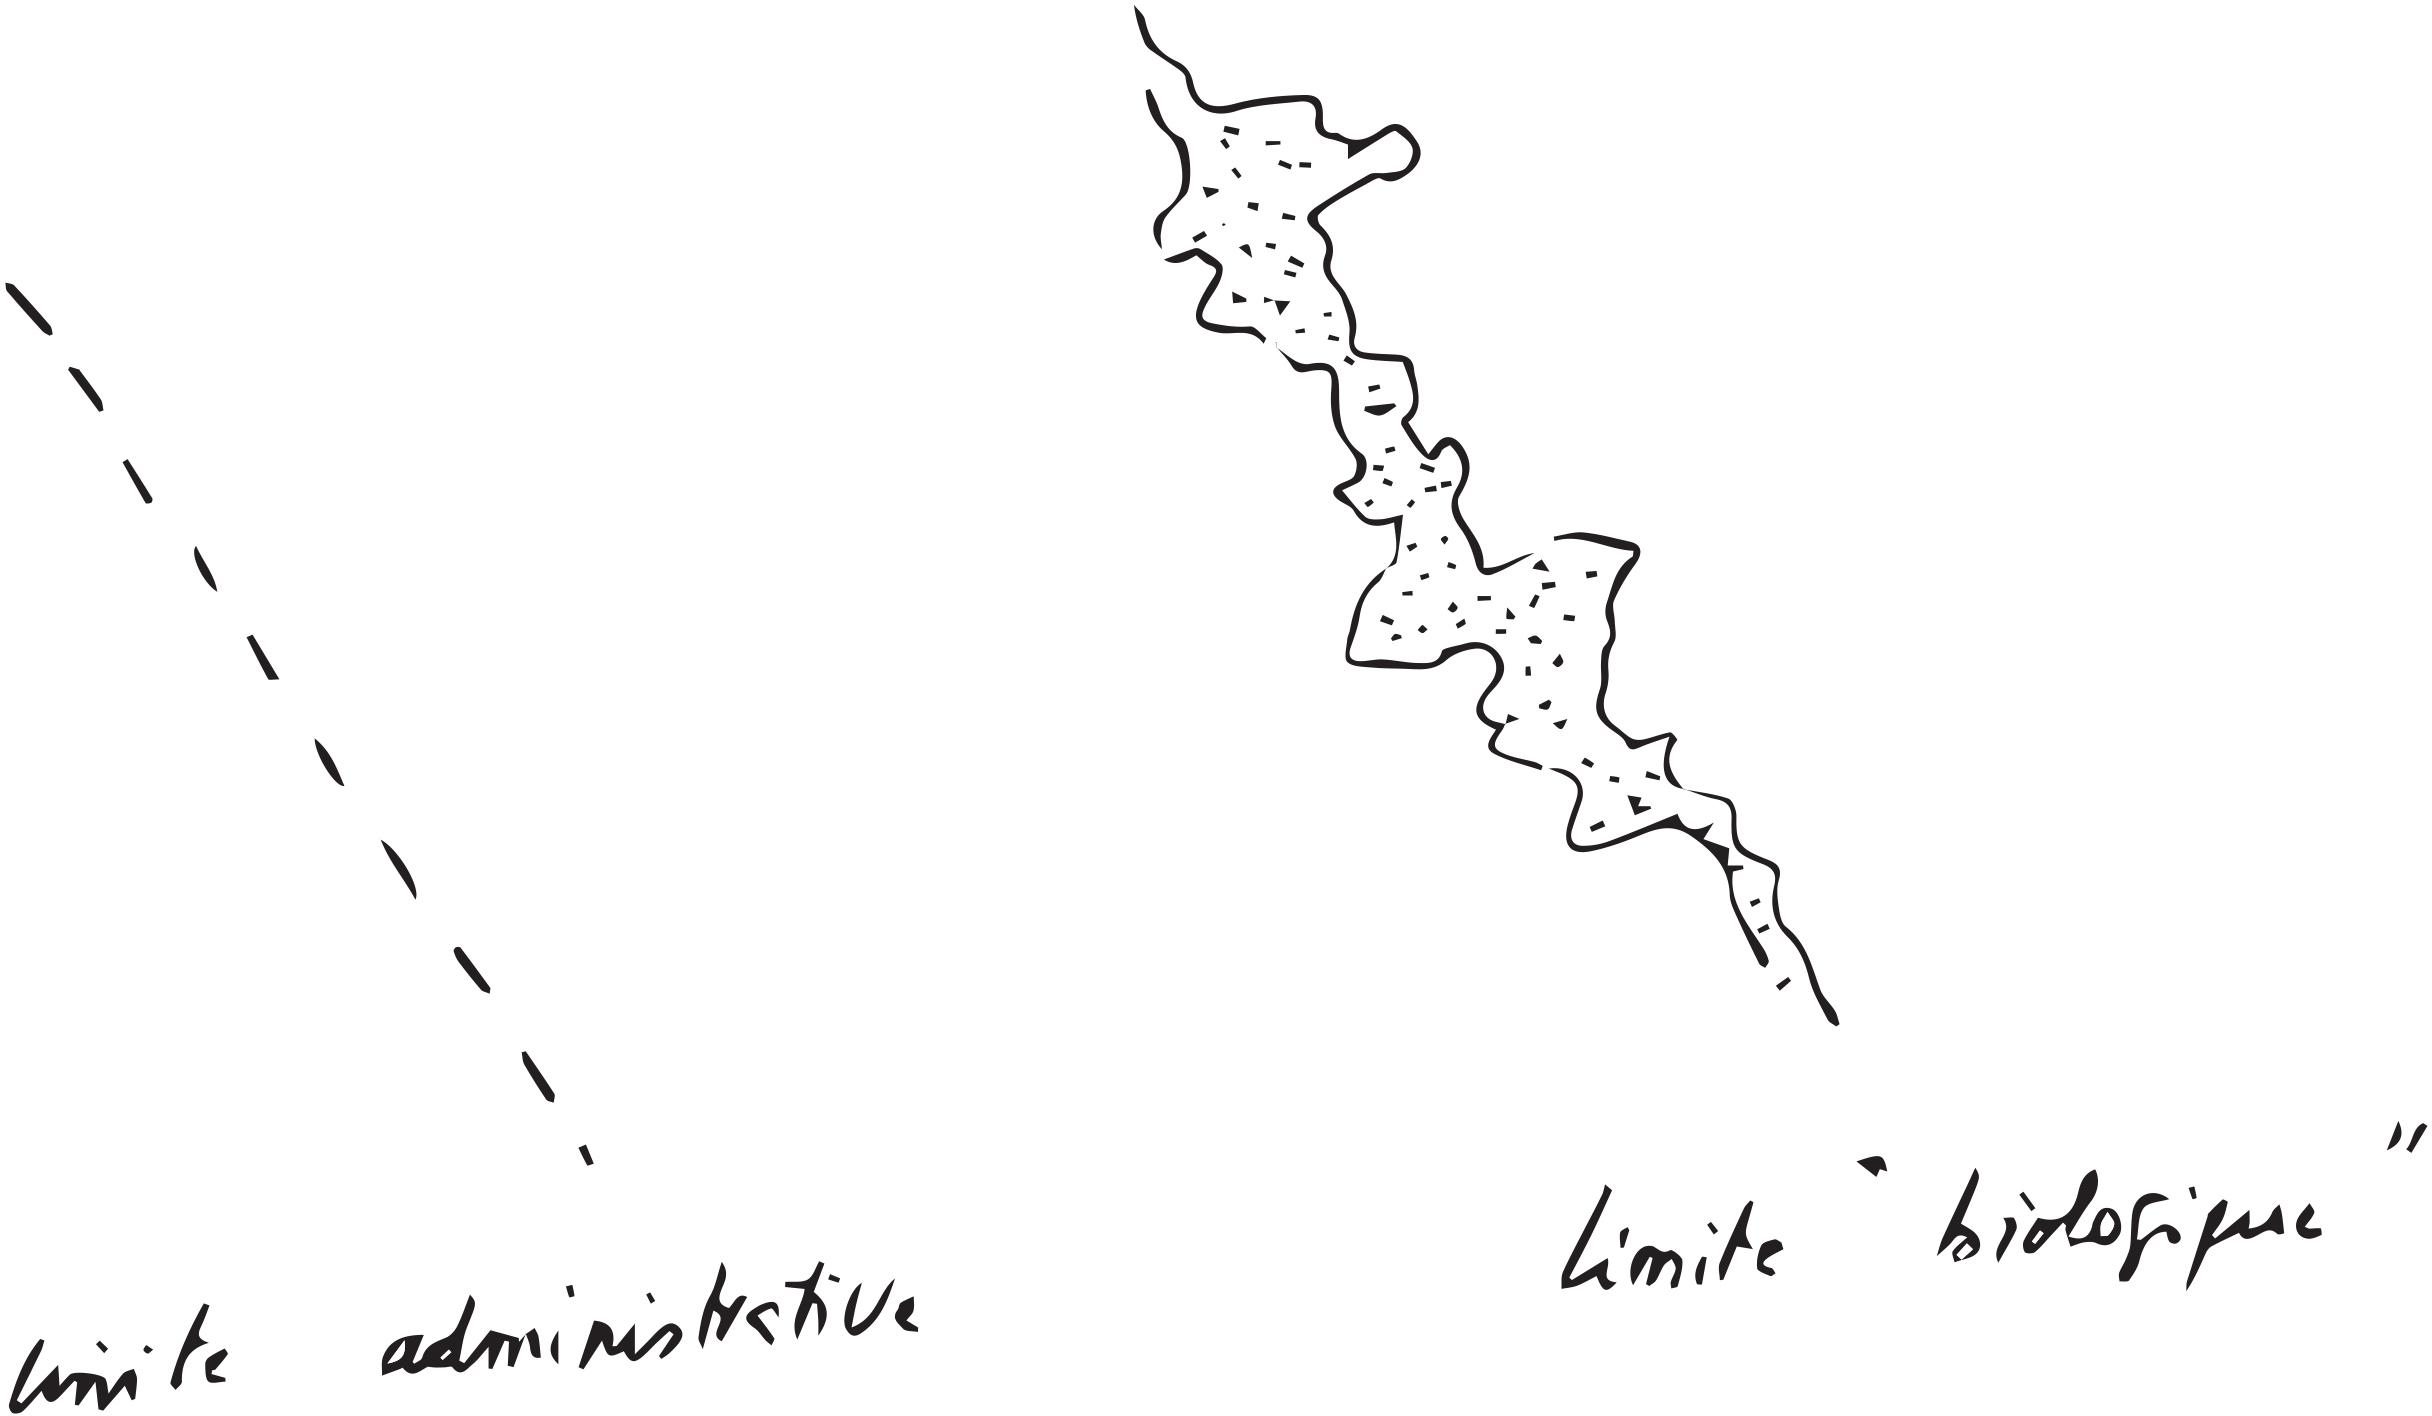 limite administrative
Limite "biologique"